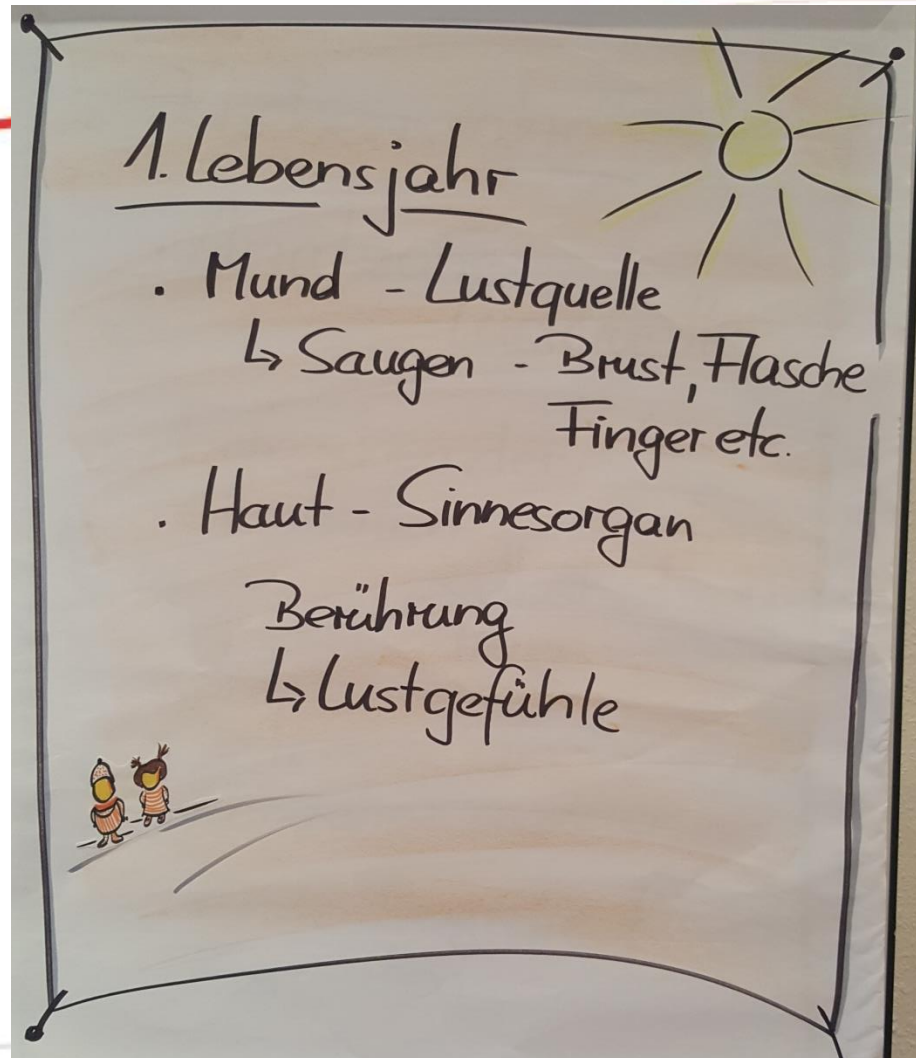 1. Lebensjahr
. Mund - Lustquelle
↳ Saugen - Brust, Flasche
Finger etc.
. Haut - Sinnesorgan
Berührung
↳ Lustgefühle